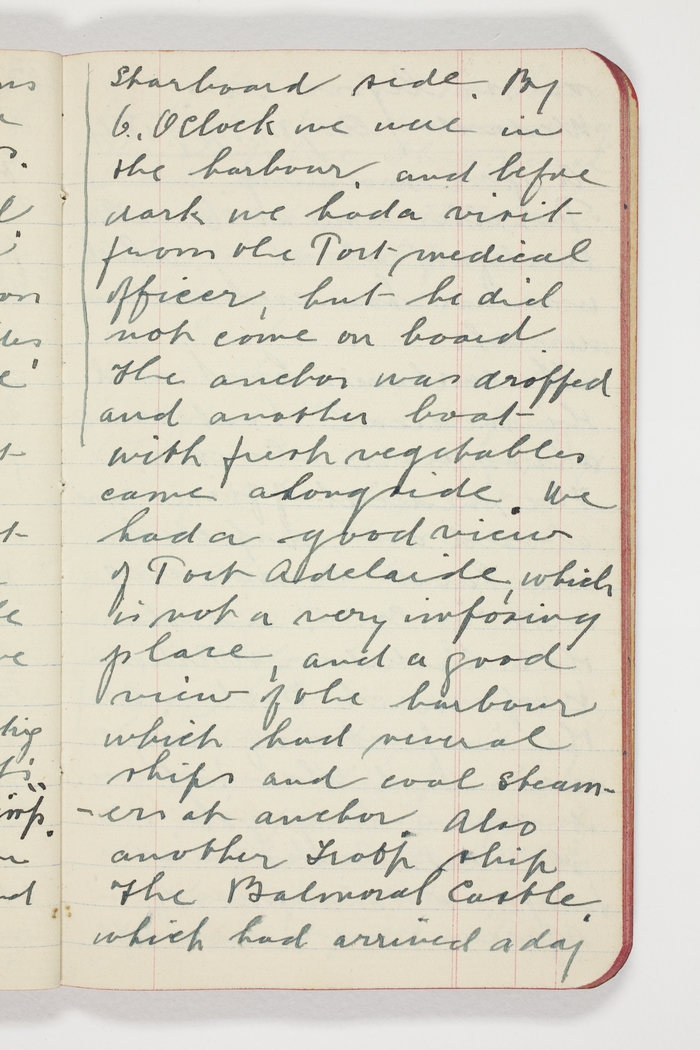 Starboard side. By
6. OClock we were in
the harbour, and before
dark we had a visit
from the Port medical
officer, but he did
not come on board
The anchor was dropped
and another boat
with fresh vegetables
came alongside. We
had a good view
of Port Adelaide, which
is not a very imposing
place, and a good
view of the harbour
which had several
ships and coal steam-
-ers at anchor. Also
another Troop ship
The Balmoral Castle,
which had arrived a day